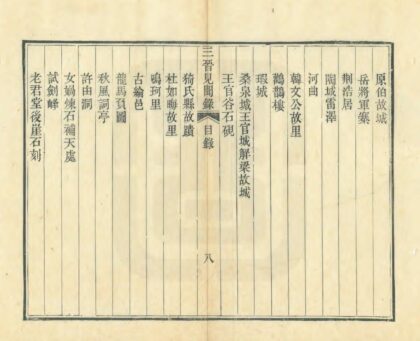 原伯故城
岳將軍藥
荆浩居
陶城雷澤
河曲
韓文公故里
鸛鵲樓
瑕城
桑泉城王官城解梁故城
王官谷石硯
三晉見聞錄
目錄
八
猗氏縣故蹟
杜如晦故里
鳴珂里
古綸邑
龍馬負圖
秋風詞亭
許由洞
女媧煉石補天處
試劍峰
老君堂後崖石刻